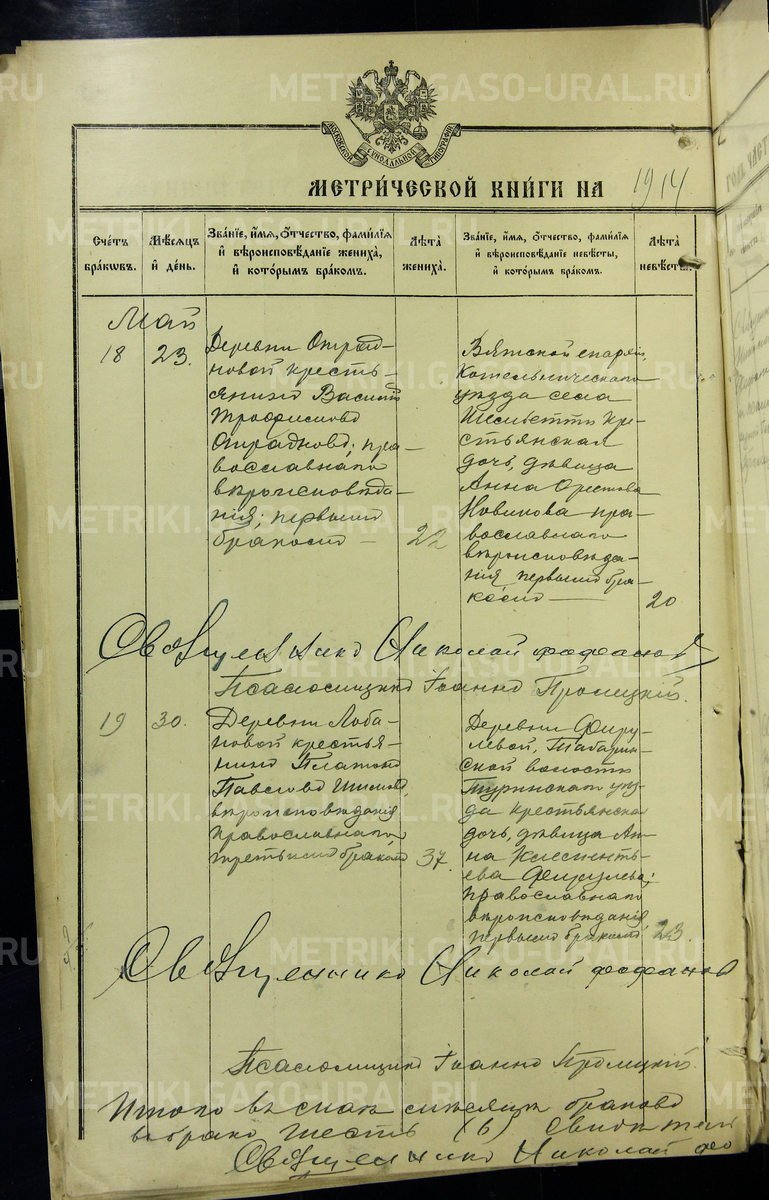 METRIKI.GASO-URAL.RU
МОСКОВСКОЙ СѴНОДАЛЬНОЙ ТИПОГРАФІИ
МЕТРИ́ЧЕСКОЙ КНИ́ГИ НА 1914
Сче́тъ бра́ковъ.
Мѣ́сяцъ и҆ де́нь.
Зва́нїе, и҆́мя, ѻ҆́тчество, фами́лїѧ и҆ вѣроисповѣ́данїе жениха̀, и҆ кото́рымъ бра́комъ.
Лѣ́та жениха̀.
Зва́нїе, и҆́мя, ѻ҆́тчество, фами́лїѧ и҆ вѣроисповѣ́данїе невѣ́сты, и҆ кото́рымъ бра́комъ.
Лѣ́та невѣ́сты.
Май
18
23.
Деревни Отрад-
новой кресть-
янинъ Василій
Трофимовъ
Отрадновъ, пра-
вославнаго
вѣроисповѣда-
нія; первымъ
бракомъ —
22
Вятской епархіи,
Котельническаго
уѣзда села
кре-
стьянская
дочь, дѣвица
Анна Орестова
Новикова пра-
вославнаго
вѣроисповѣда-
нія первымъ бра-
комъ —
20
Священникъ Николай Фофановъ
Псаломщикъ Іоаннъ Троицкій.
19
30.
Деревни Лоба-
новой крестья-
нинъ Платонъ
Павловъ
вѣроисповѣданія
православнаго
третьимъ бракомъ
37.
Деревни Фиру-
левой, Табарин-
ской волости
Туринскаго уѣз-
да крестьянская
дочь, дѣвица Ан-
на Клементь-
ева Фирулева;
православнаго
вѣроисповѣданія
первымъ бракомъ
23.
Священникъ Николай Фофановъ
Псаломщикъ Іоаннъ Троицкій.
Итого въ маѣ мѣсяцѣ браковъ
шесть (6)
Священникъ Николай Фо